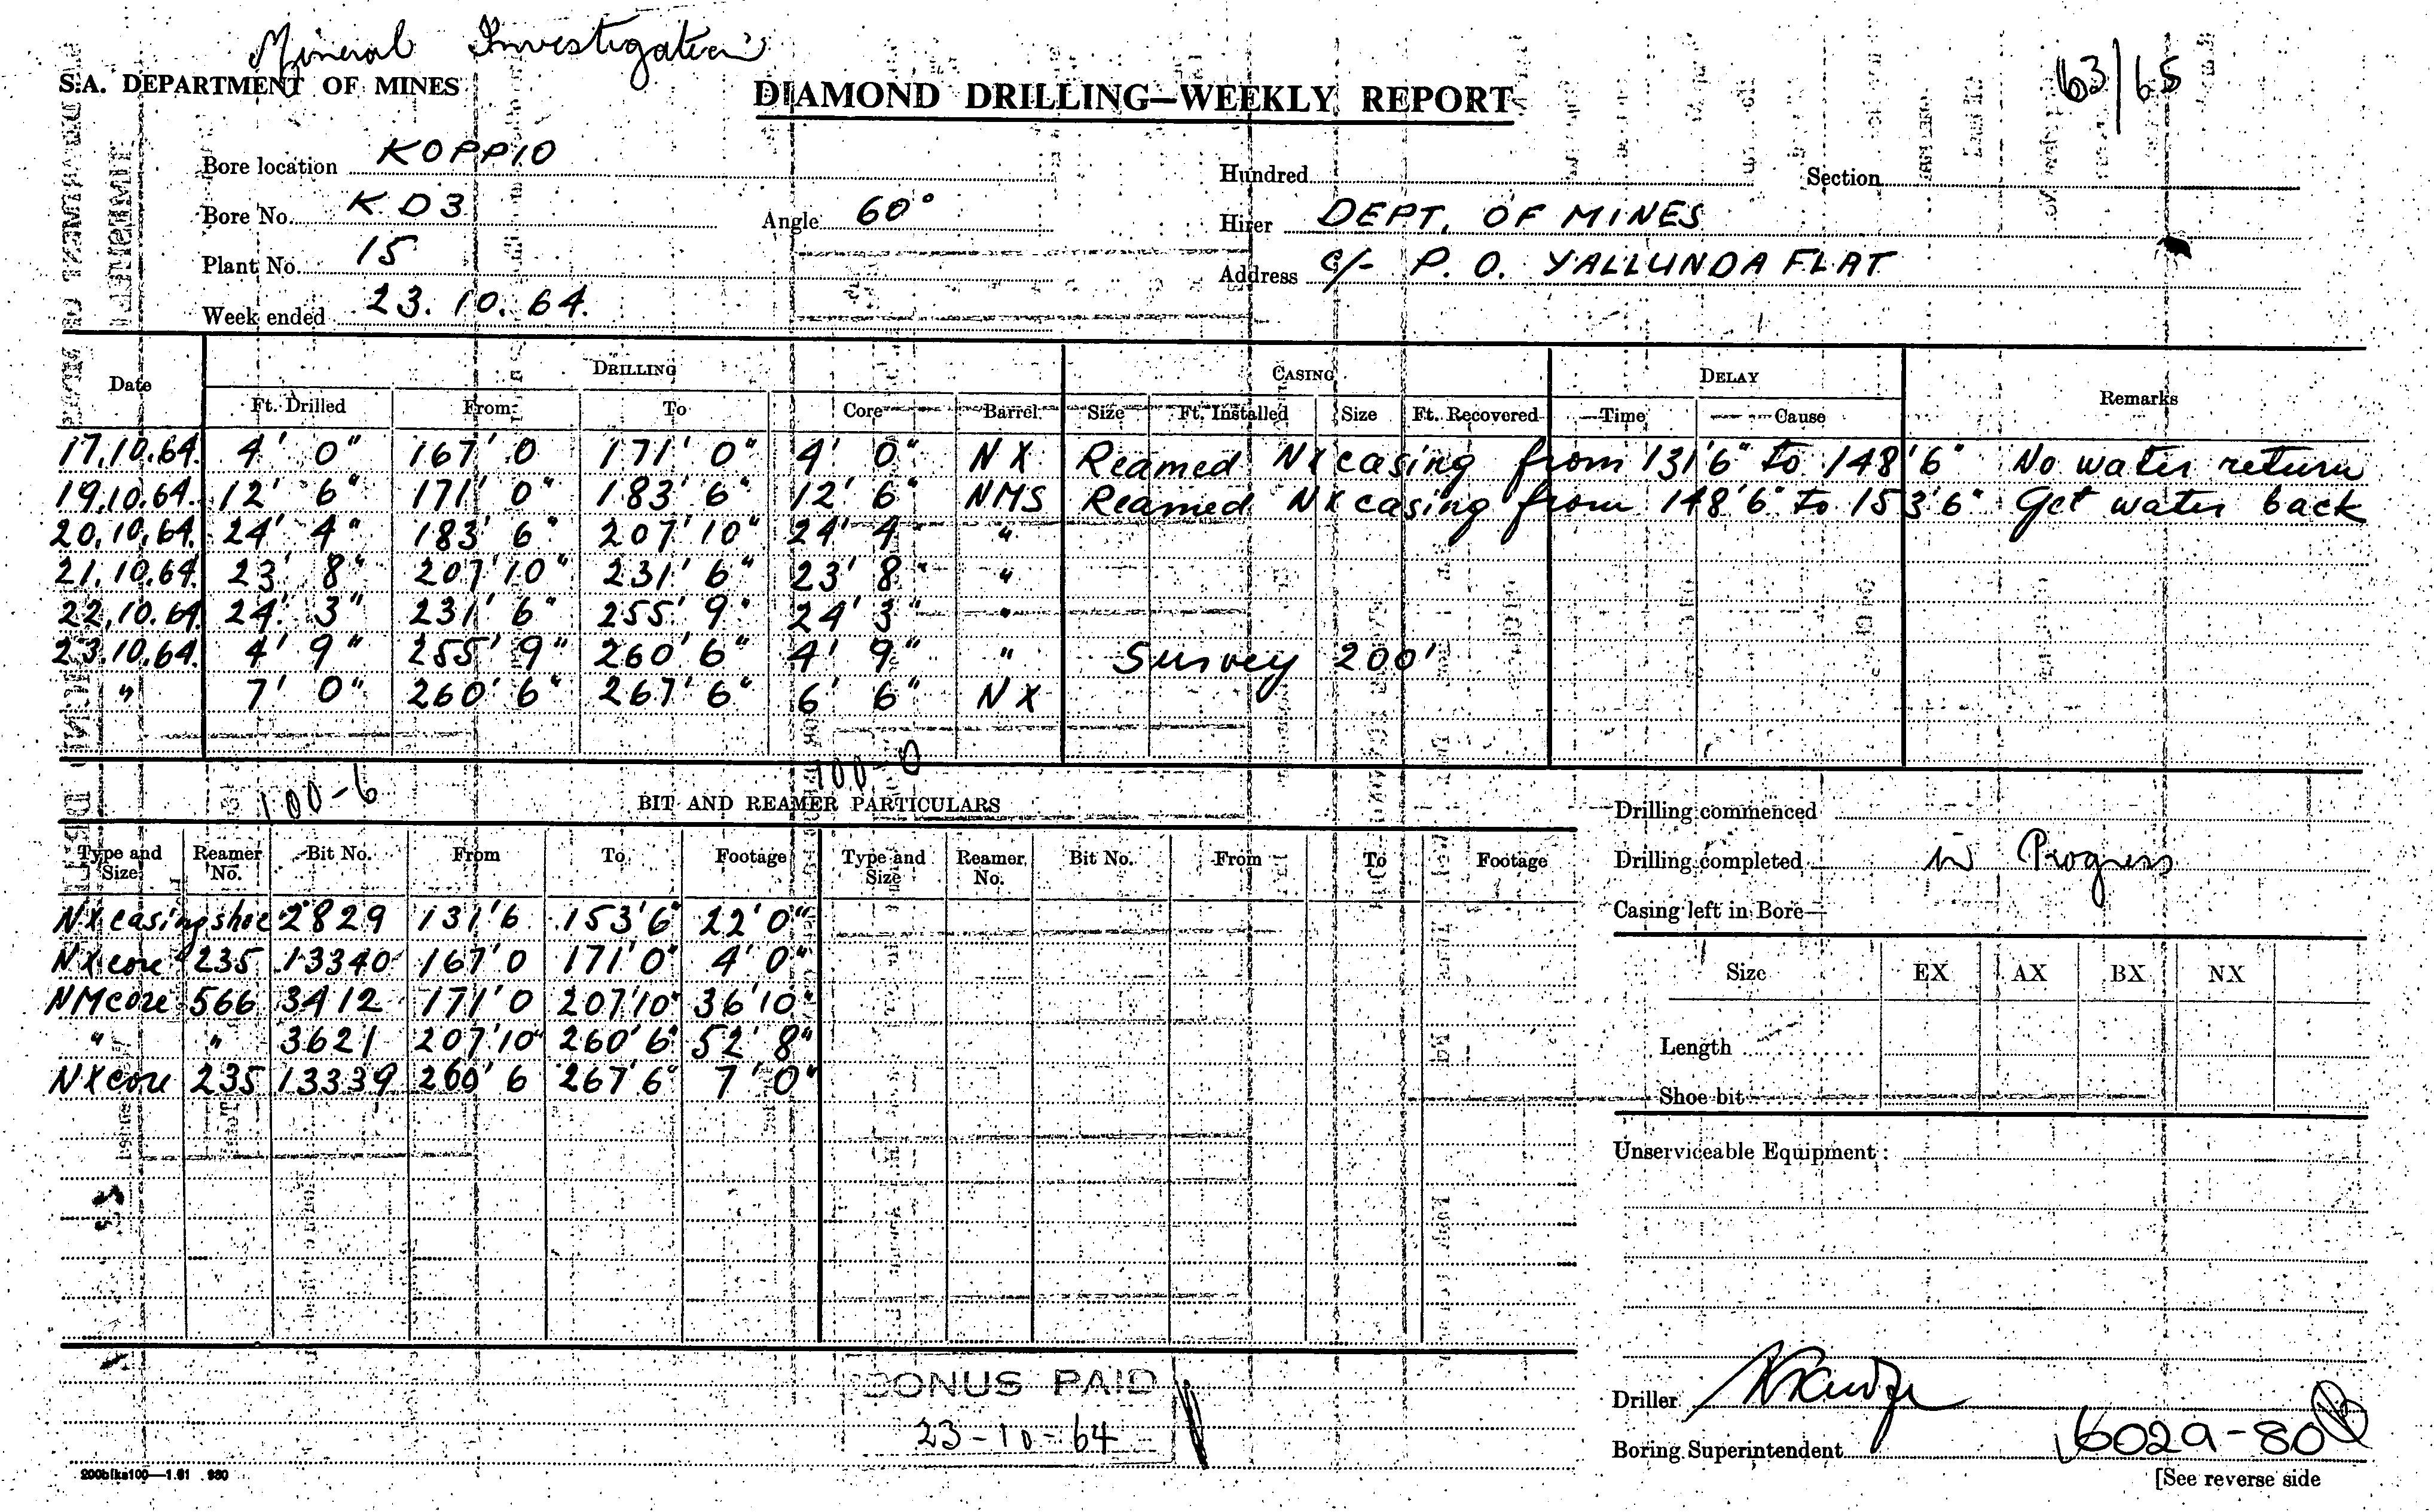 Mineral Investigation
63/65
S.A. DEPARTMENT OF MINES
DIAMOND DRILLING—WEEKLY REPORT
Bore location KOPPIO
Hundred
Section
Bore No. KD3
Angle 60°
Hirer DEPT. OF MINES
Plant No. 15
Address C/- P.O. YALLUNDA FLAT
Week ended 23.10.64.
Date
DRILLING
CASING
DELAY
Remarks
Ft. Drilled From To Core Barrel Size Ft. Installed Size Ft. Recovered Time Cause
17.10.64. 4' 0" 167' 0 171' 0" 4' 0" NX Reamed NX casing from 131'6" to 148'6" No water return
19.10.64. 12' 6" 171' 0" 183' 6" 12' 6" NMS Reamed NX casing from 148'6" to 153'6" Get water back
20.10.64. 24' 4" 183' 6" 207' 10" 24' 4" "
21.10.64. 23' 8" 207' 10" 231' 6" 23' 8" "
22.10.64. 24' 3" 231' 6" 255' 9" 24' 3" "
23.10.64. 4' 9" 255' 9" 260' 6" 4' 9" " Survey 200'
" 7' 0" 260' 6" 267' 6" 6' 6" NX
100-6
100-0
BIT AND REAMER PARTICULARS
Type and Size Reamer No. Bit No. From To Footage Type and Size Reamer No. Bit No. From To Footage
NX casing shoe 2829 131'6 153'6" 22'0"
NX core 235 13340 167'0 171'0" 4'0"
NM core 566 3412 171'0 207'10" 36'10"
" " 3621 207'10" 260'6" 52'8"
NX core 235 13339 260'6 267'6" 7'0"
Drilling commenced
Drilling completed in Progress
Casing left in Bore—
Size EX AX BX NX
Length
Shoe bit
Unserviceable Equipment:
BONUS PAID
23-10-64
Driller
Boring Superintendent
6029-80
200bks100—1.61 930
[See reverse side